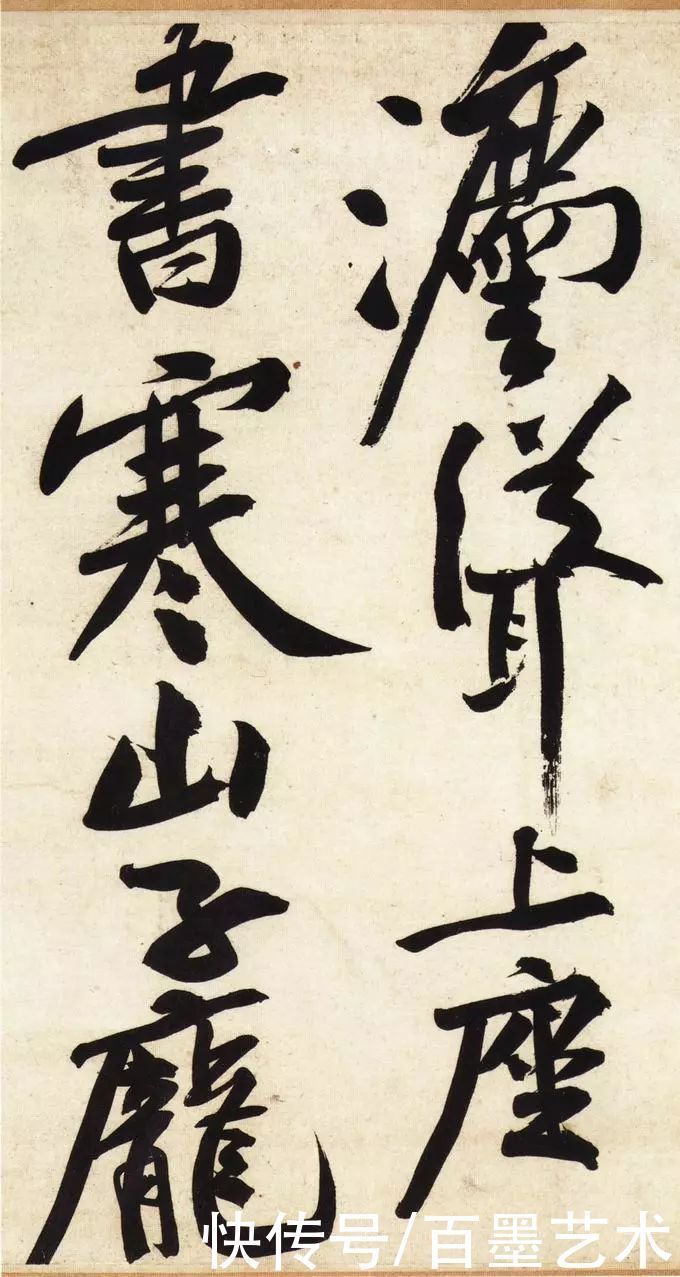 灋聳上座
書寒山子龐
快传号/百墨艺术